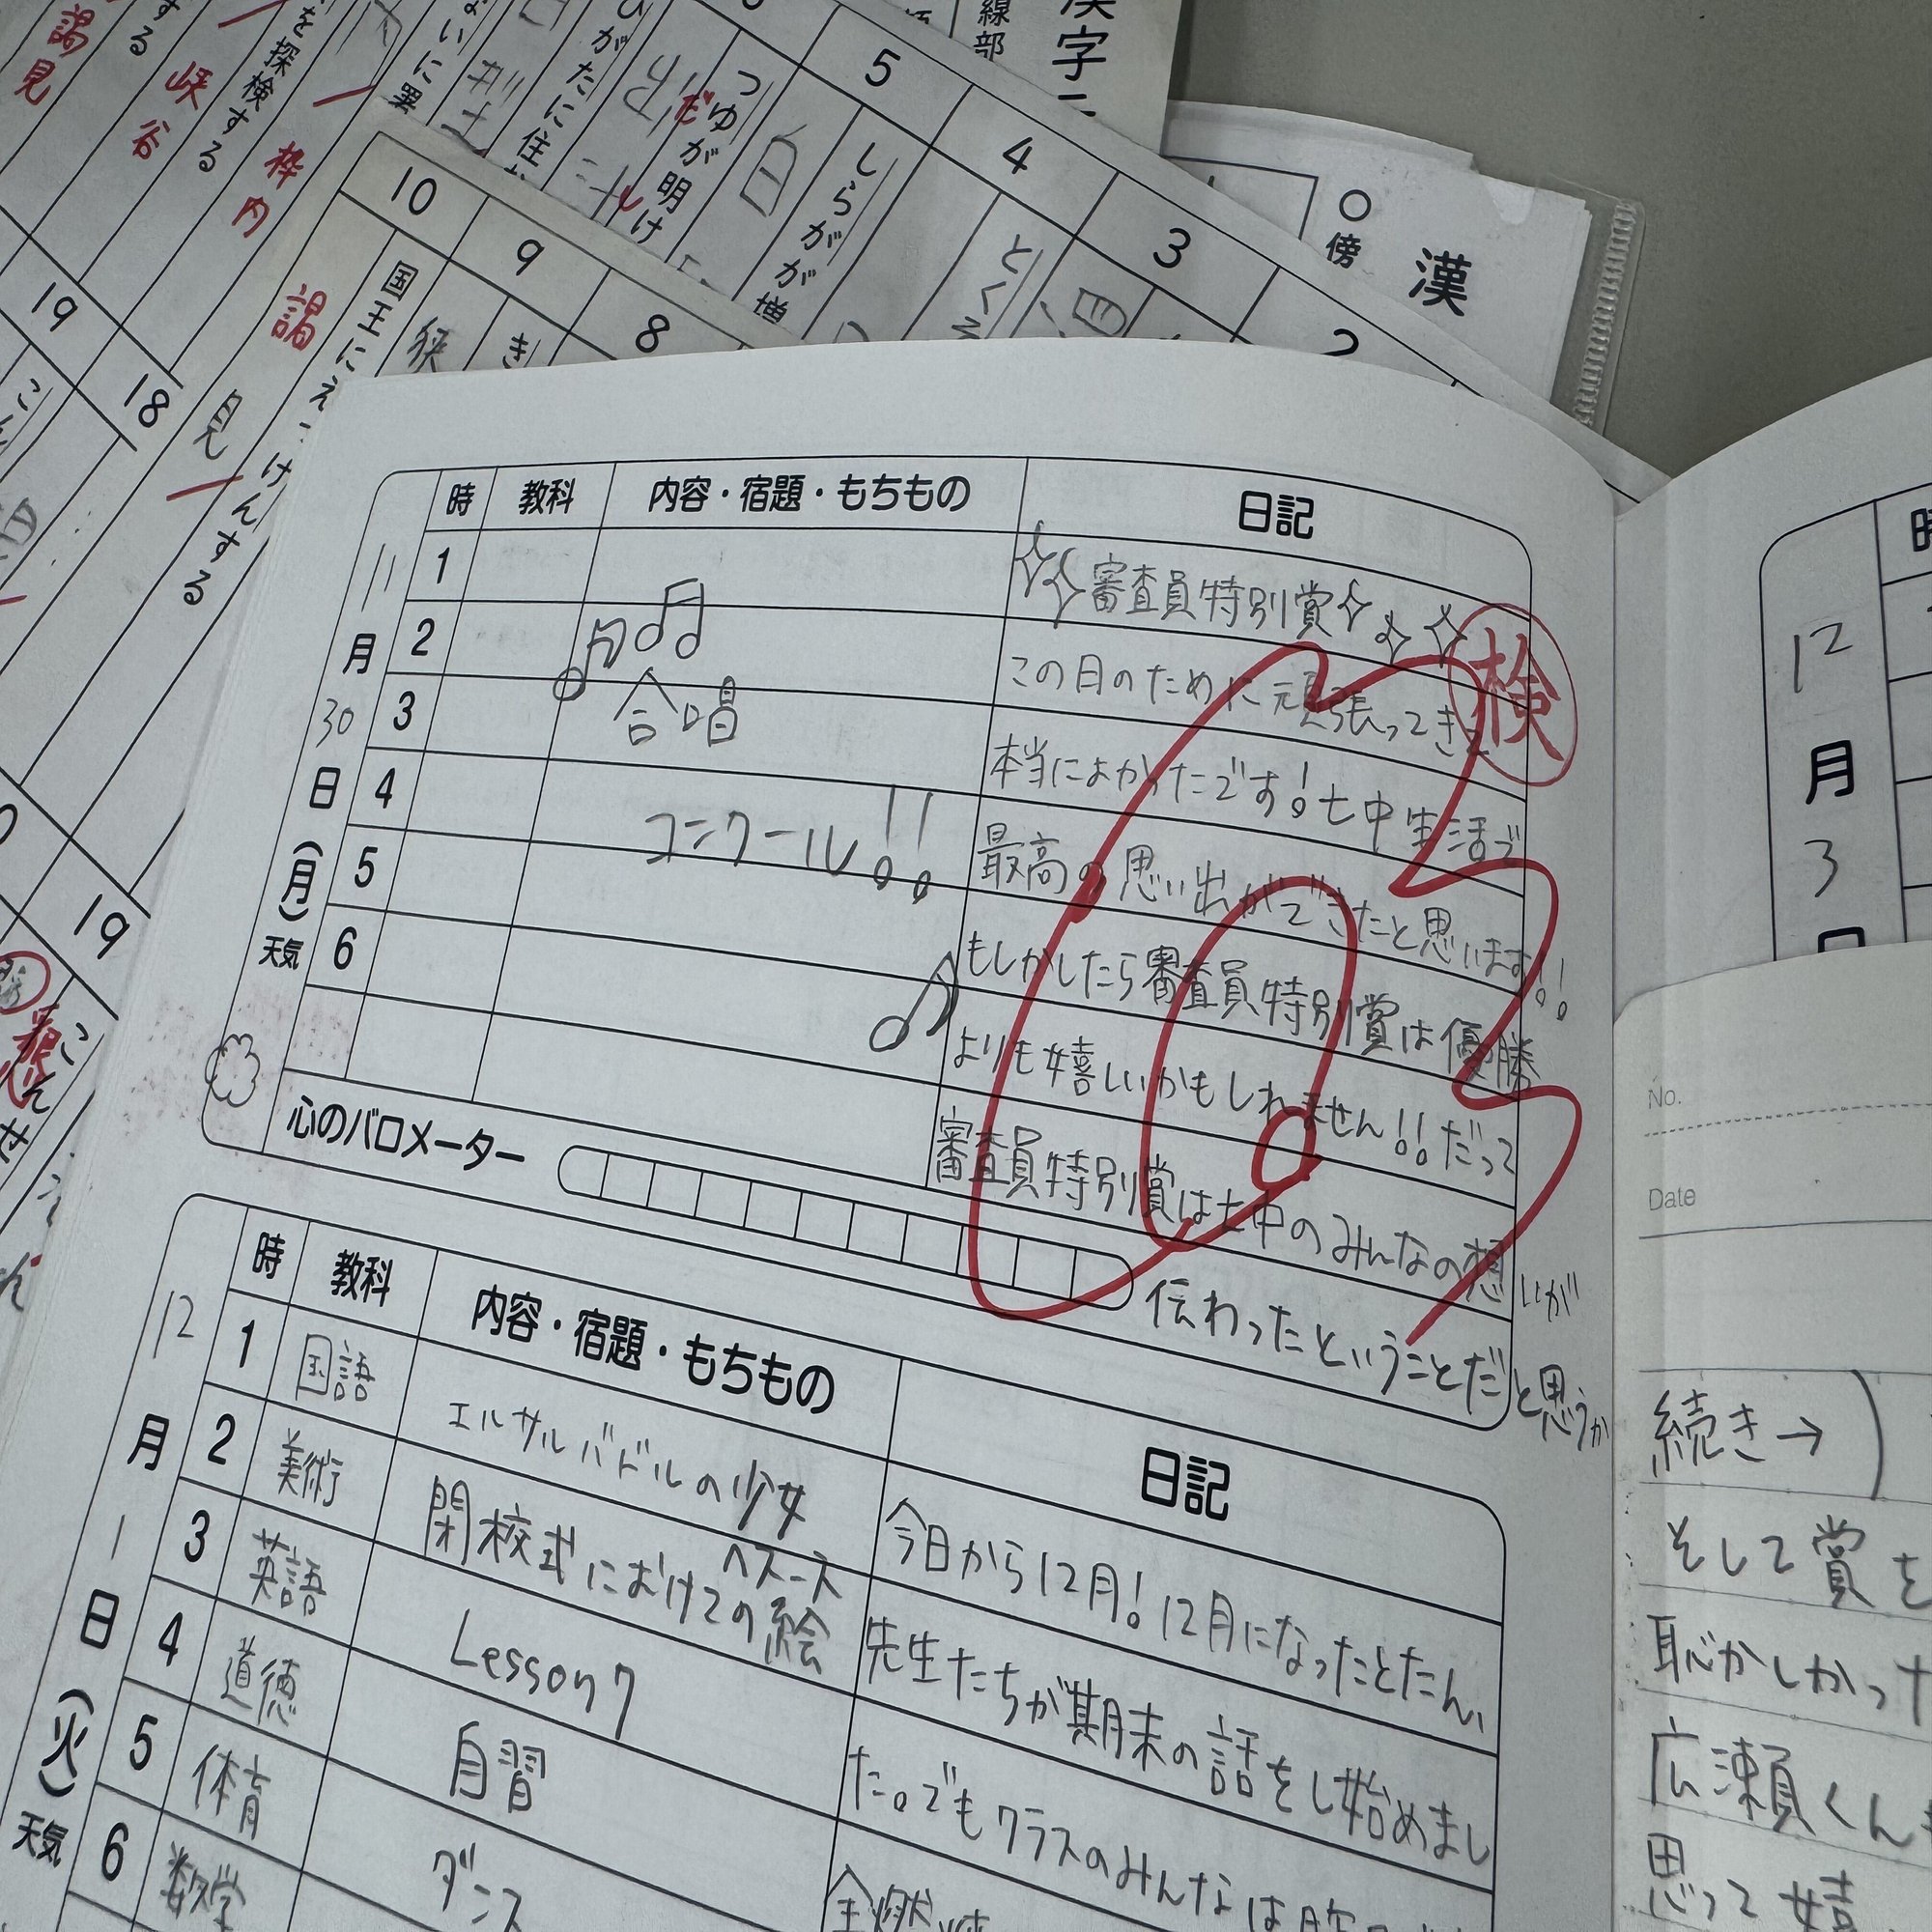 漢字
線部
5
4
3
2
つゆが明け
しらがが増
とくそ
ひがたに住
を探検する
枠内
峡谷
謁見
する
19
18
○傍
漢
10
9
8
国王にえっけんする
謁
見
狭
き
19
時
教科
内容・宿題・もちもの
日記
11
月
30
日
(月)
天気
1
2
3
4
5
6
合唱
コンクール!!
審査員特別賞
検
この日のために頑張ってきて
本当によかったです!七中生活で
最高の思い出ができたと思います!!
もしかしたら審査員特別賞は優勝
よりも嬉しいかもしれません!!だって
審査員特別賞は七中のみんなの想いが
伝わったということだと思うか
心のバロメーター
時
教科
内容・宿題・もちもの
日記
12
月
1
日
(火)
天気
1 国語 エルサルバドルの少女
ヘスース
2 美術 閉校式にむけての絵
3 英語 Lesson7
4 道徳 自習
5 体育 ダンス
6 数学
今日から12月!12月になったとたん、
先生たちが期末の話をし始めまし
た。でもクラスのみんなは
全然
時
12
月
3
日
No.
Date
続き→
そして賞を
恥かしかった
広瀬くん
思って嬉